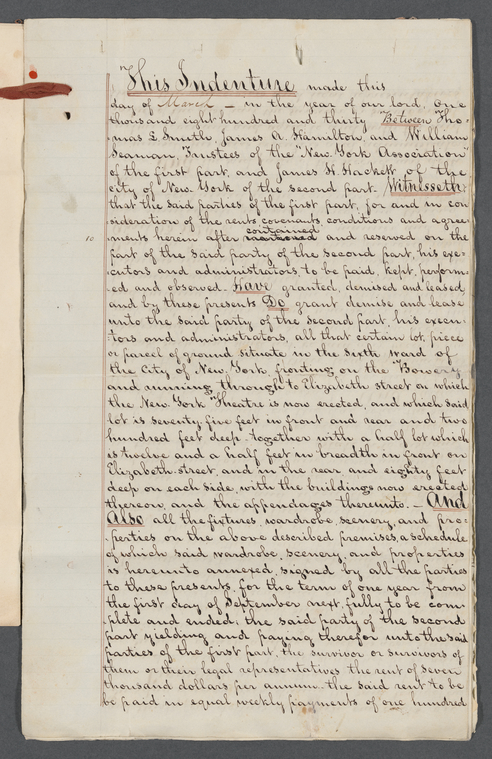 This Indenture made this
day of March – in the year of our lord, One
thousand eight hundred and thirty Between Tho-
mas L Smith, James A. Hamilton, and William
Seaman, Trustees of the "New York Association"
of the first part, and James H. Hackett of the
city of New York of the second part. Witnesseth:
that the said parties of the first part, for and in con
sideration of the rents covenants, conditions and agree
contained
10 ments herein after and reserved on the
part of the said party of the second part, his exe-
cutors and administrators to be paid, kept, perform-
ed and observed. Have granted, demised and leased
and by these presents Do grant demise and lease
unto the said party of the second part, his execu-
tors and administrators, all that certain lot, piece
or parcel of ground situate in the sixth ward of
the City of New York, fronting on the "Bowery
and running through to Elizabeth street on which
the New York Theatre is now erected, and which said
lot is seventy five feet in front and rear and two
hundred feet deep. together with a half lot which
is twelve and a half feet in breadth in front on
Elizabeth street, and in the rear and eighty feet
deep on each side, with the buildings now erected
thereon, and the appendages thereunto. – And
Also all the fixtures, wardrobe, scenery, and pro-
perties on the above described premises, a schedule
of which said wardrobe, scenery, and properties
is hereunto annexed, signed by all the parties
to these presents, for the term of one year from
the first day of September next, fully to be com-
plete and ended, the said party of the second
part yielding and paying therefor unto the said
parties of the first part, the survivor or survivors of
them or their legal representatives the rent of seven
thousand dollars per annum. the said rent to be
be paid in equal weekly payments of one hundred